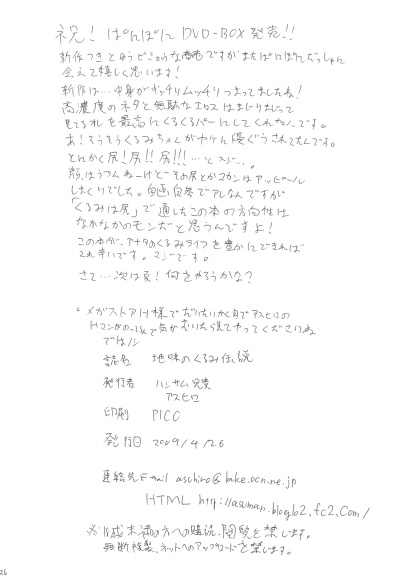 祝! ぱんぽに DVD-BOX発売!!
新作つきとゆうビミョウな商売ですがまたぱにぽにだっしゅに
会えて嬉しく思います!
新作は…中身がギッチリムッチリつまってましたね!
高濃度のネタと無駄なエロスはまじりあって
見てるオレを最高にくるくるパーにしてくれないです。
あ!そうそうくるみちゃんがヤケに優ぐうされてたんです。
とにかく尻!尻!!尻!!!…とスジ…。
顔はうつんねーけどその尻とかマカンはアッピール
しまくりでした。自画自賛でアレなんですが
「くるみは尻」で通したこの本の方向性は
なかなかのモンだと思うんですよ!
この本が、アナタのくるみライフを豊かにできれば
これ幸いです。マジです。
さて…次は夏!何をやろうかな?
・メガストアH様でだいたいかく月でアスヒロの
Hマンガのってんで気がむいたら見てやってくださいね
ではノシ
誌名 地味のくるみ伝説
発行者 ハンサム兄弟
アスヒロ
印刷 PICO
発行日 2009/4/26
連絡先 E-mail aschiro@lake.ocn.ne.jp
HTML http://asuman.blog62.fc2.com/
※18歳未満の方への購読、閲覧を禁じます。
無断複製、ネットへのアップロードを禁じます。
26